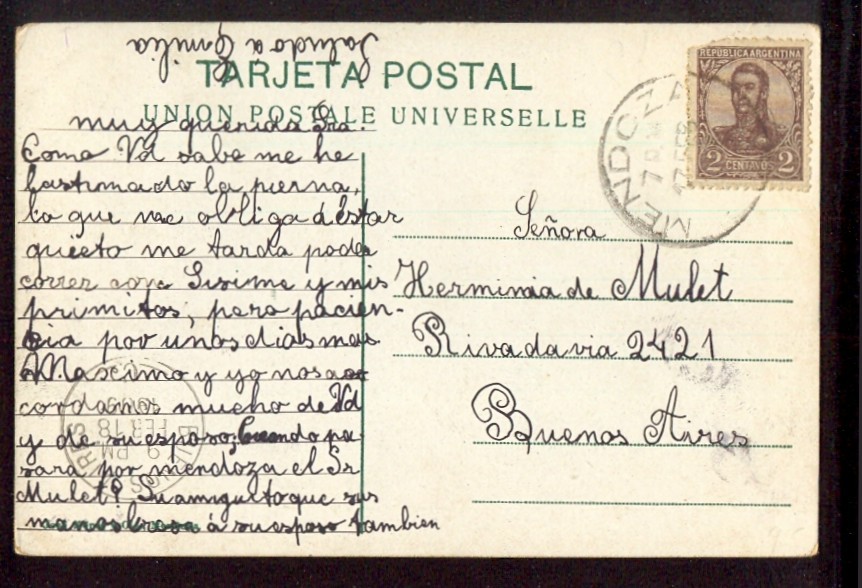 Saludo á Emilia
TARJETA POSTAL
UNION POSTALE UNIVERSELLE
REPUBLICA ARGENTINA
2 CENTAVOS 2
MENDOZA
muy querida Sra.
Como Vd sabe me he
lastimado la pierna,
lo que me obliga á éstar
quieto me tarda poder
correr con y mis
primitos, pero pacien-
cia por unos dias mas
Maximo y yo nos a
cordamos mucho de Vd
y de su esposo; Cuando pa
sara por mendoza el Sr
Mulet? Su amiguito que sus
manos besa á su esposo tambien
Señora
Herminia de Mulet
Rivadavia 2421
Buenos Aires
9 PM
FEB 18